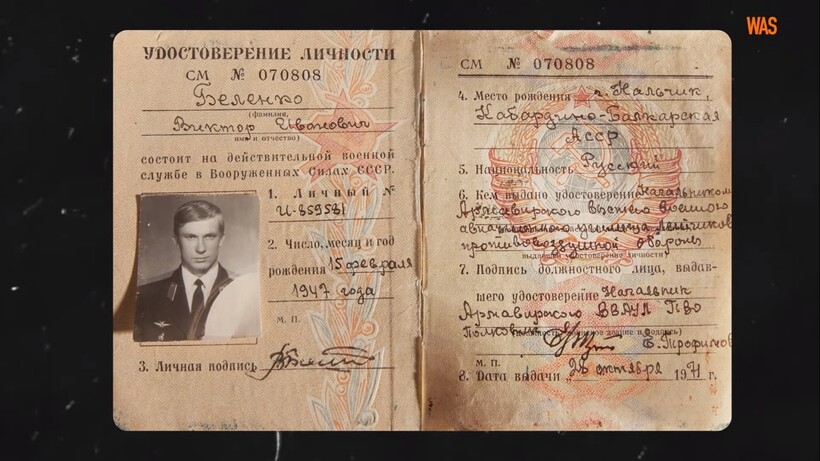 WAS
УДОСТОВЕРЕНИЕ ЛИЧНОСТИ
СМ № 070808
Беленко
(фамилия,
Виктор Иванович
имя и отчество)
состоит на действительной военной
службе в Вооруженных Силах СССР.
1. Личный №
И-859581
2. Число, месяц и год
рождения 15 февраля
1947 года
М. П.
3. Личная подпись
СМ № 070808
4. Место рождения г. Нальчик,
Кабардино-Балкарская
АССР
5. Национальность Русский
6. Кем выдано удостоверение Начальником
Армавирского высшего военного
авиационного училища лётчиков
противовоздушной обороны
выдавшего удостоверение личности)
7. Подпись должностного лица, выдав-
шего удостоверение Начальник
Армавирского ВВАУЛ ПВО
Полковник звание и подпись)
Е. Трофимов
М. П.
8. Дата выдачи „26 октября 1971 г.